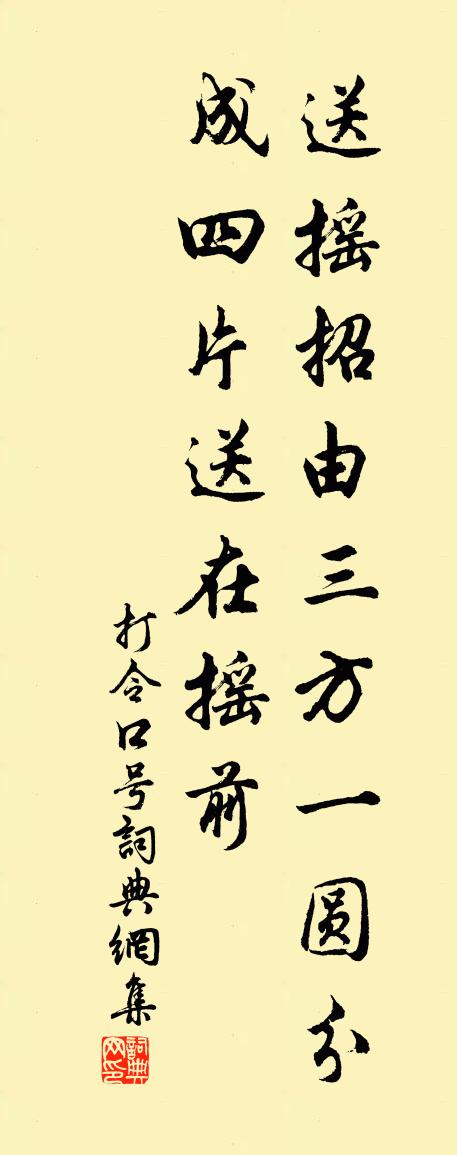 送摇招由三方一圆分
成四片送在摇前
打令口号詞典網集
詞典网印